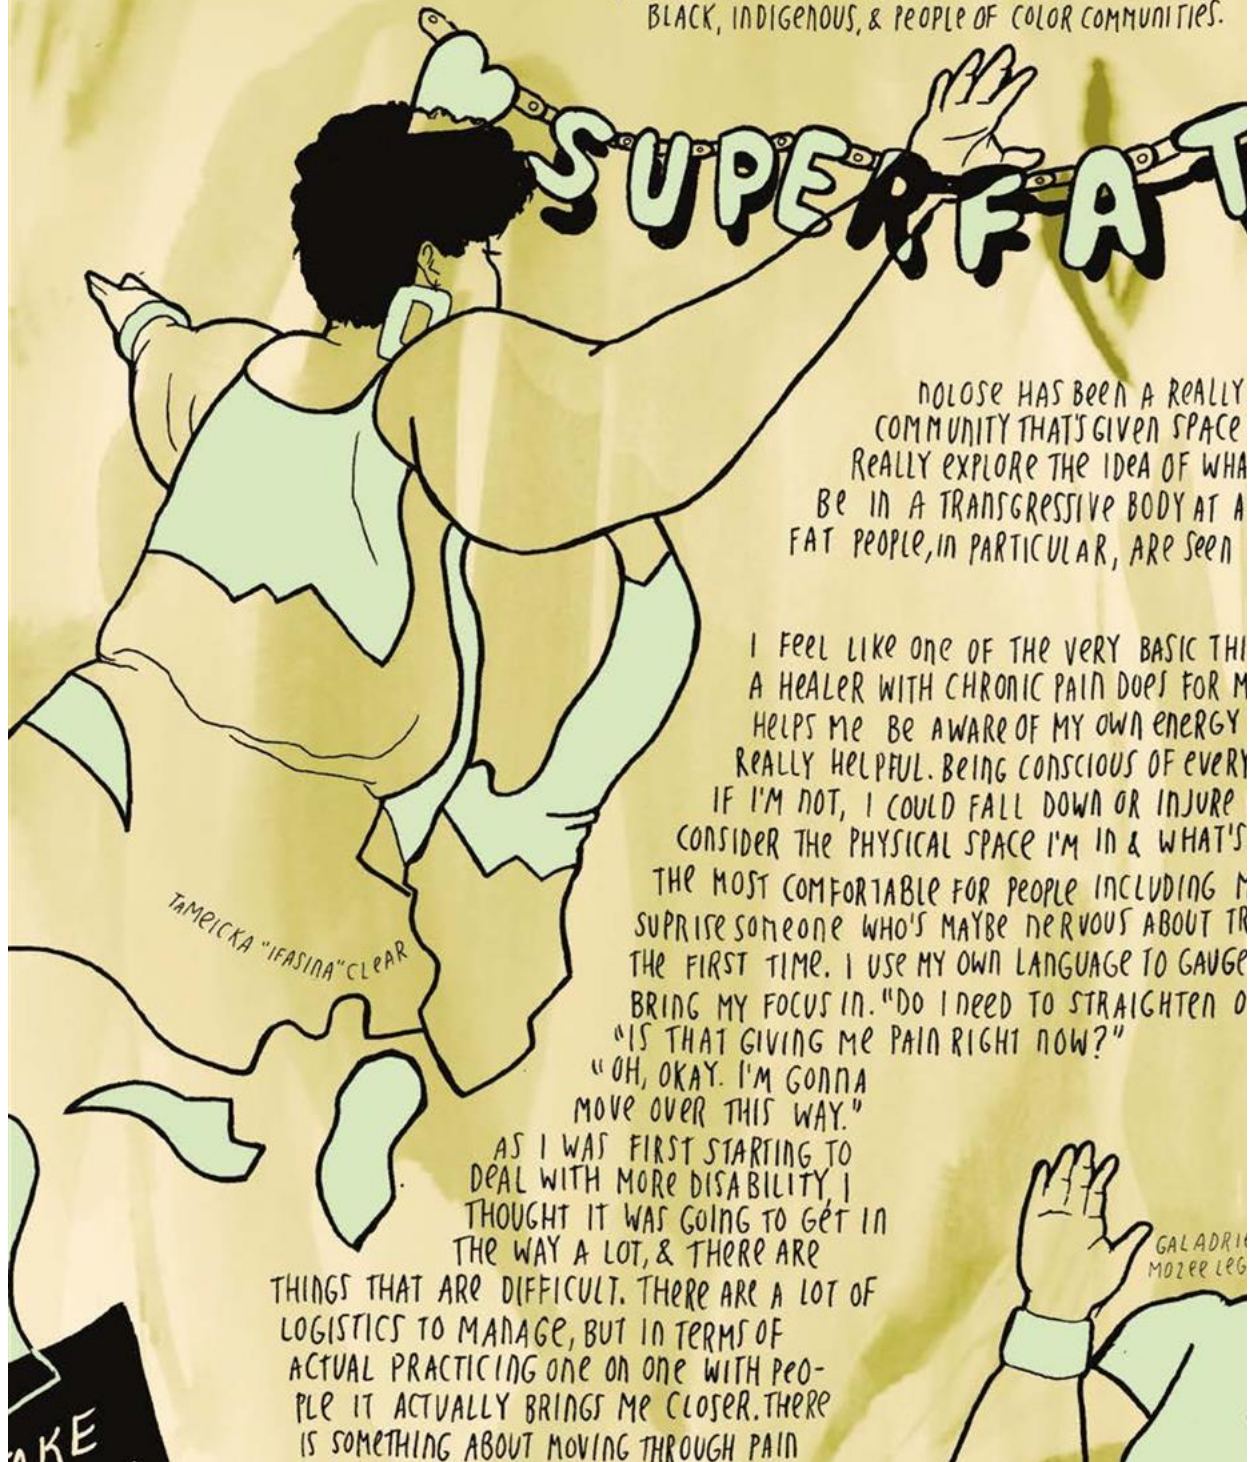 BLACK, INDIGENOUS, & PEOPLE OF COLOR COMMUNITIES.
SUPERFAT
NOLOSE HAS BEEN A REALLY
COMMUNITY THAT'S GIVEN SPACE
REALLY EXPLORE THE IDEA OF WHA
BE IN A TRANSGRESSIVE BODY AT A
FAT PEOPLE, IN PARTICULAR, ARE SEEN
I FEEL LIKE ONE OF THE VERY BASIC THI
A HEALER WITH CHRONIC PAIN DOES FOR M
HELPS ME BE AWARE OF MY OWN ENERGY
REALLY HELPFUL. BEING CONSCIOUS OF EVERY
IF I'M NOT, I COULD FALL DOWN OR INJURE
CONSIDER THE PHYSICAL SPACE I'M IN & WHAT'S
THE MOST COMFORTABLE FOR PEOPLE INCLUDING M
SUPRISE SOMEONE WHO'S MAYBE NERVOUS ABOUT TR
THE FIRST TIME. I USE MY OWN LANGUAGE TO GAUGE
BRING MY FOCUS IN. "DO I NEED TO STRAIGHTEN O
"IS THAT GIVING ME PAIN RIGHT NOW?"
"OH, OKAY. I'M GONNA
MOVE OVER THIS WAY."
AS I WAS FIRST STARTING TO
DEAL WITH MORE DISABILITY, I
THOUGHT IT WAS GOING TO GET IN
THE WAY A LOT, & THERE ARE
THINGS THAT ARE DIFFICULT. THERE ARE A LOT OF
LOGISTICS TO MANAGE, BUT IN TERMS OF
ACTUAL PRACTICING ONE ON ONE WITH PEO-
PLE IT ACTUALLY BRINGS ME CLOSER. THERE
IS SOMETHING ABOUT MOVING THROUGH PAIN
TAMEICKA "IFASINA" CLEAR
GALADRIE
MOZEE LEG
AKE